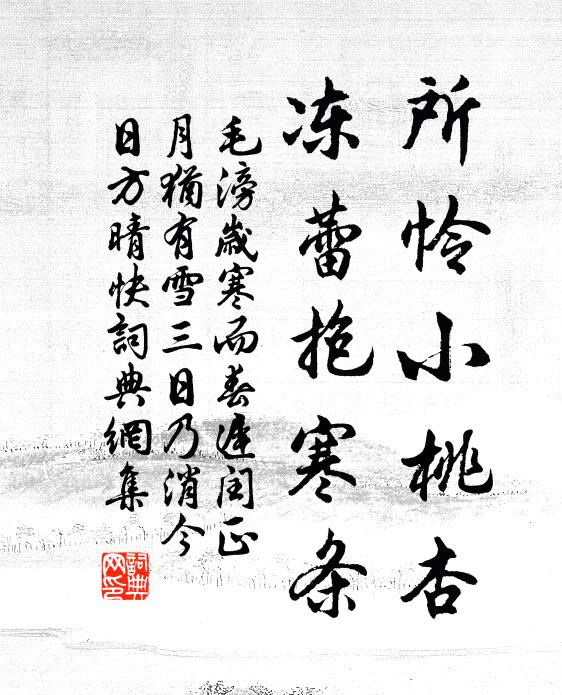 所怜小桃杏
冻蕾抱寒条
毛滂歲寒而春遲闰正
月猶有雪三日乃消今
日方晴快詞典網集
詞典
网印